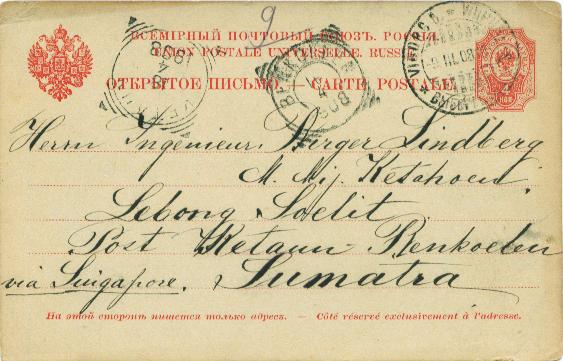 9
ВСЕМІРНЫЙ ПОЧТОВЫЙ СОЮЗЪ. РОССІЯ.
UNION POSTALE UNIVERSELLE. RUSSIE
ОТКРЫТОЕ ПИСЬМО. — CARTE POSTALE.
Herrn Ingenieur Birger Lindberg
M. Mij. Ketahoen
Lebong Soelit
Post Ketaun - Benkoelen
via Singapore. Sumatra
На этой сторонѣ пишется только адресъ. — Côté réservé exclusivement à l'adresse.